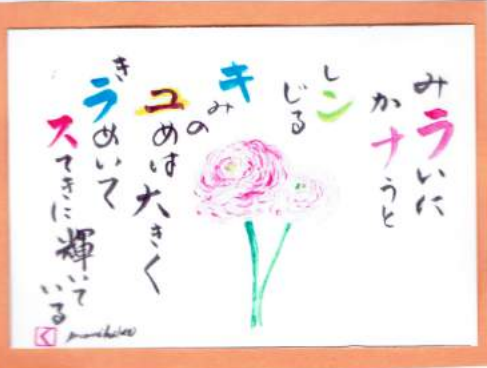 みラいに
かナうと
しン
じる
キみの
ユめは大きく
きラめいて
スてきに輝いて
いる
く